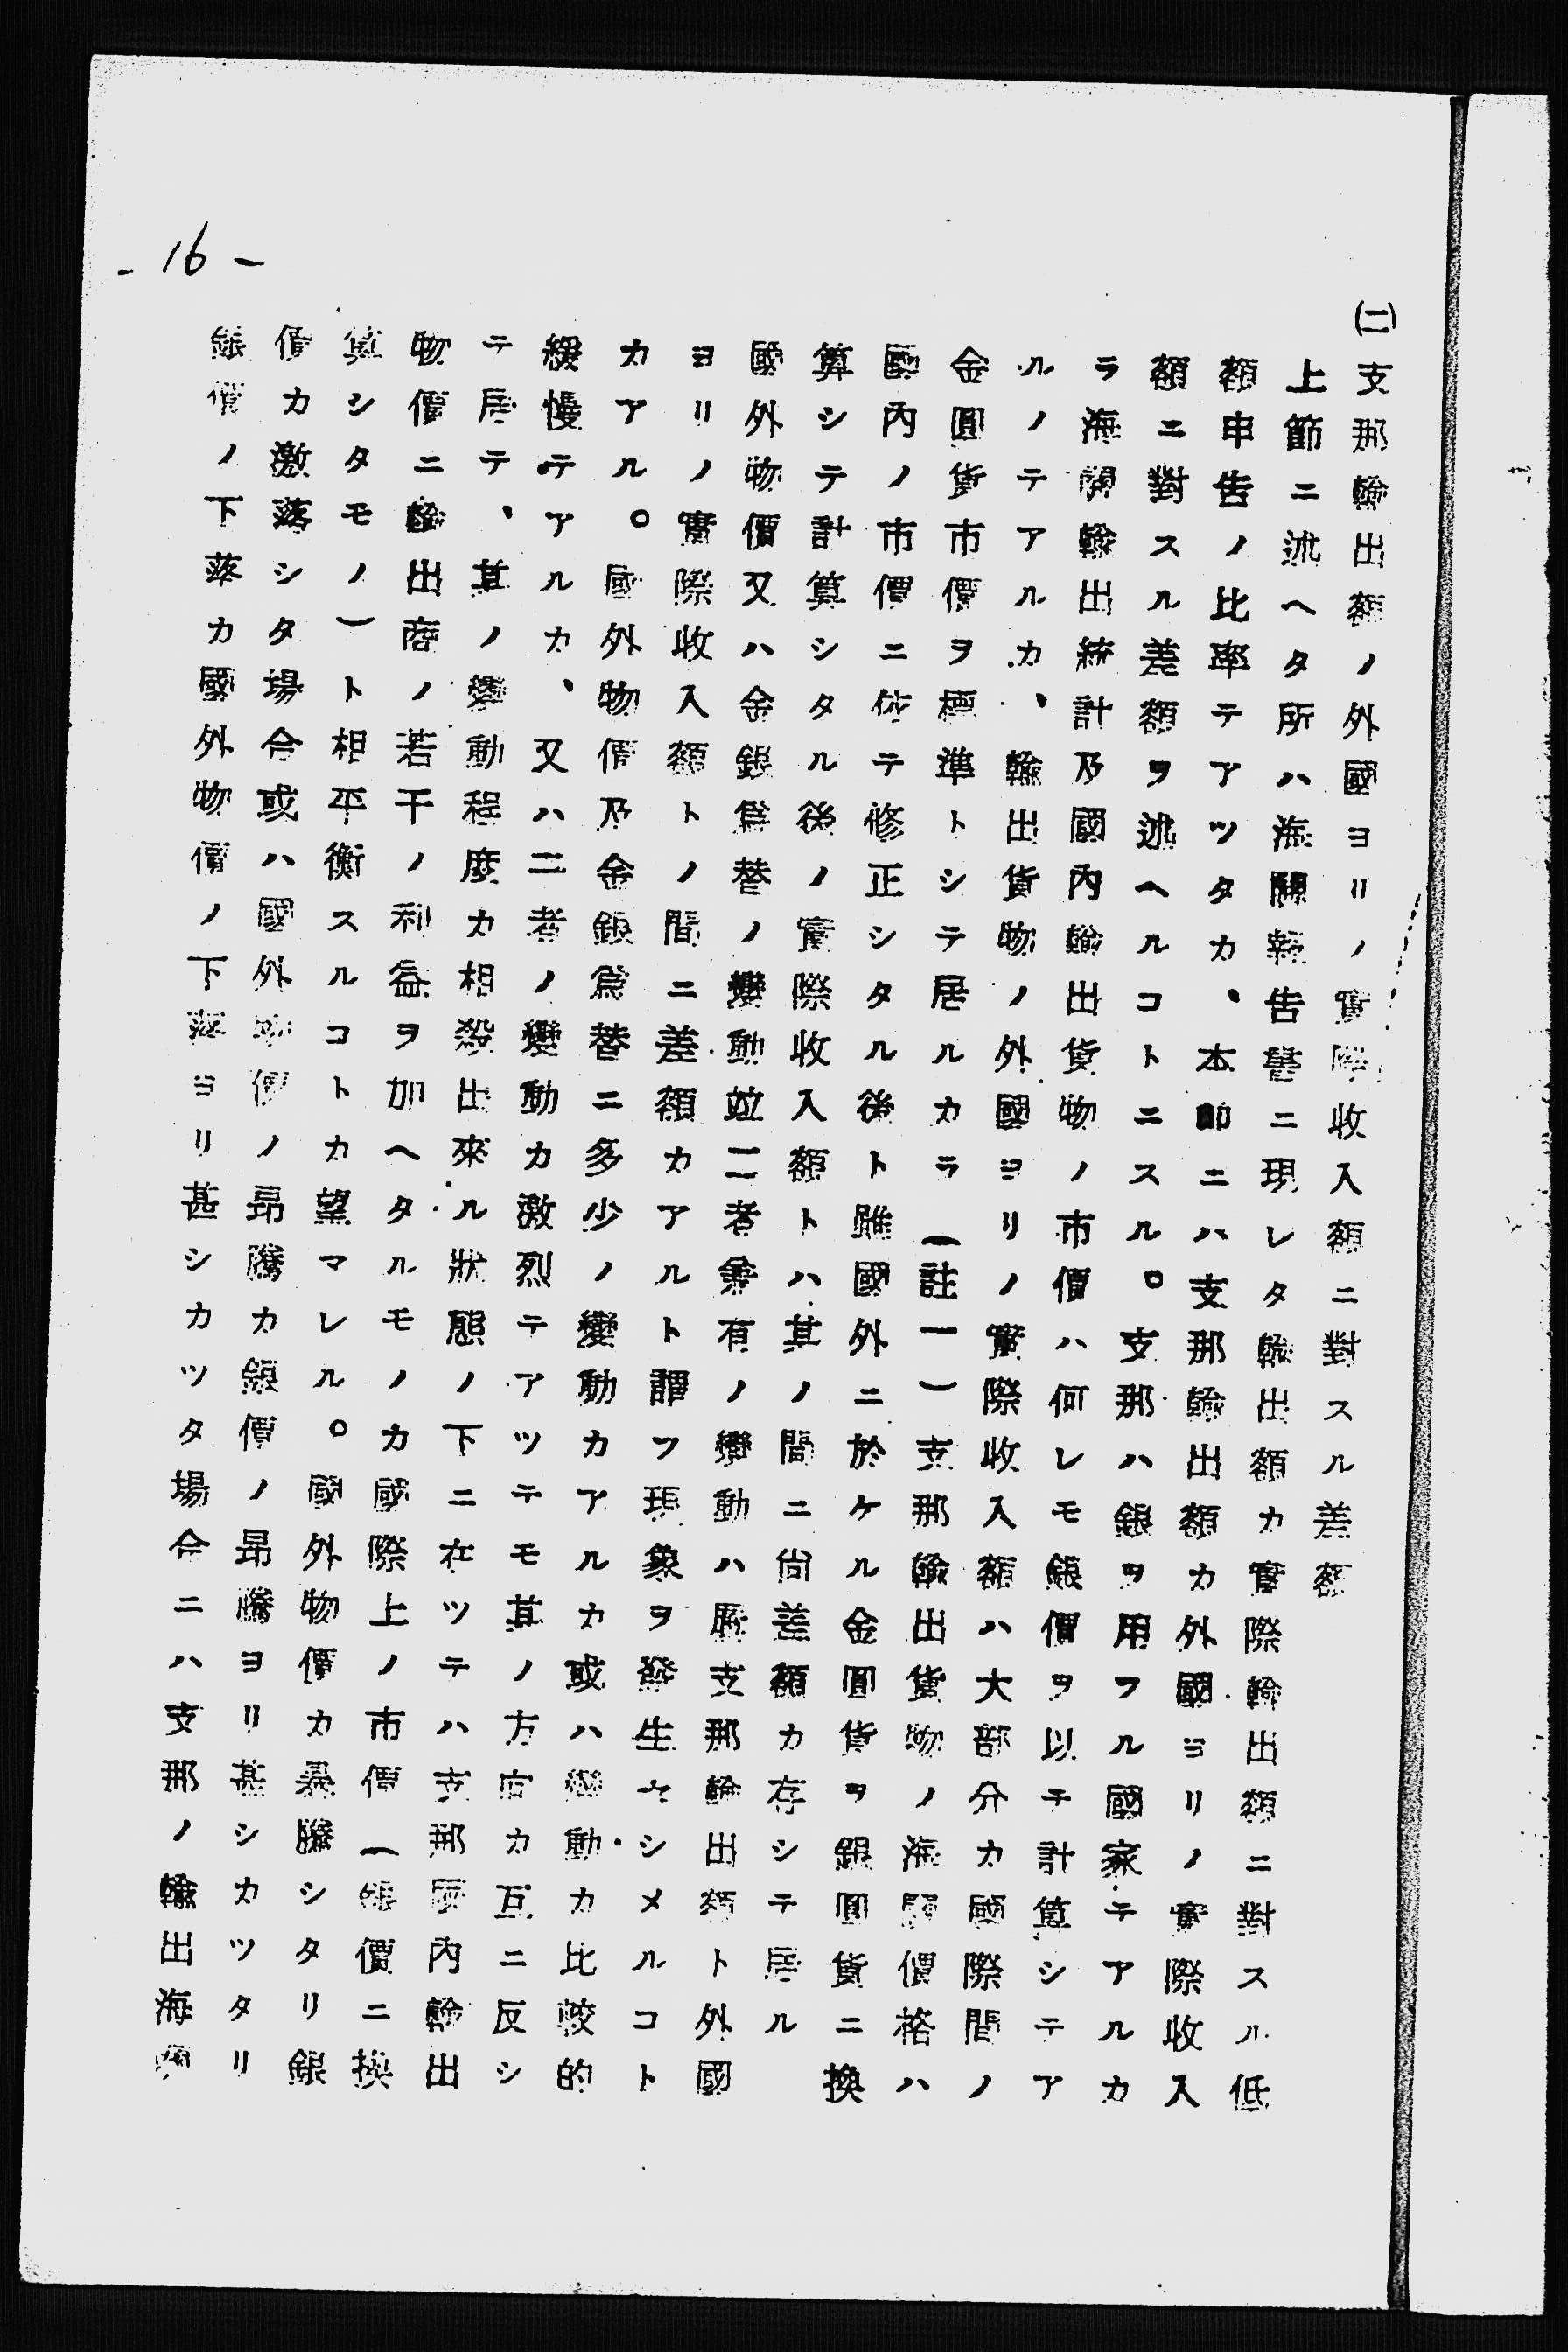 ㈡支那輸出額ノ外國ヨリノ實際收入額ニ對スル差額
上節ニ述ヘタ所ハ海關報告書ニ現レタ輸出額カ實際輸出額ニ對スル低
額申告ノ比率テアツタカ、本節ニハ支那輸出額カ外國ヨリノ實際收入
額ニ對スル差額ヲ述ヘルコトニスル。支那ハ銀ヲ用フル國家テアルカ
ラ海關輸出統計及國內輸出貨物ノ市價ハ何レモ銀價ヲ以テ計算シテア
ルノテアルカ、輸出貨物ノ外國ヨリノ實際收入額ハ大部分カ國際間ノ
金圓貨市價ヲ標準トシテ居ルカラ(註一)支那輸出貨物ノ海關價格ハ
國內ノ市價ニ依テ修正シタル後ト雖國外ニ於ケル金圓貨ヲ銀圓貨ニ換
算シテ計算シタル後ノ實際收入額トハ其ノ間ニ尙差額カ存シテ居ル
國外物價又ハ金銀爲替ノ變動竝二者兼有ノ變動ハ支那輸出額ト外國
ヨリノ實際收入額トノ間ニ差額カアルト謂フ現象ヲ發生セシメルコト
カアル。國外物價及金銀爲替ニ多少ノ變動カアルカ或ハ變動カ比較的
緩慢テアルカ、又ハ二者ノ變動カ激烈テアツテモ其ノ方向カ互ニ反シ
テ居テ、其ノ變動程度カ相殺出來ル狀態ノ下ニ在ツテハ支那國內輸出
物價ニ輸出商ノ若干ノ利益ヲ加ヘタルモノカ國際上ノ市價(銀價ニ換
算シタモノ)ト相平衡スルコトカ望マレル。國外物價カ暴騰シタリ銀
價カ激落シタ場合或ハ國外物價ノ昂騰カ銀價ノ昂騰ヨリ甚シカツタリ
銀價ノ下落カ國外物價ノ下落ヨリ甚シカツタ場合ニハ支那ノ輸出海關
-16-